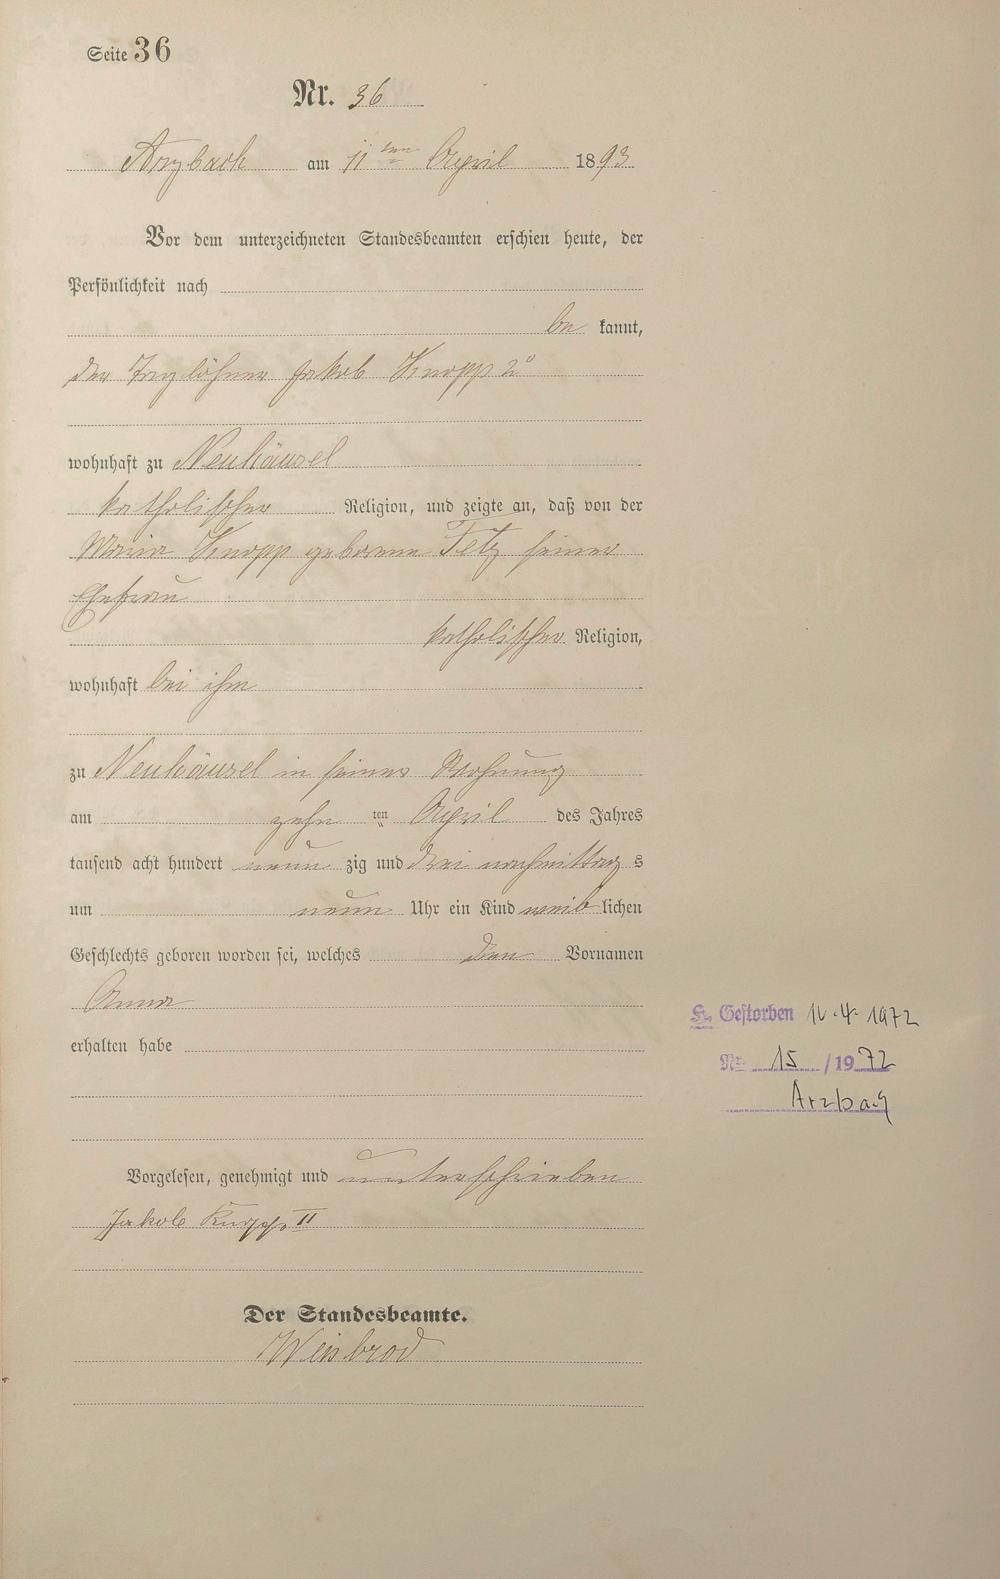 Seite 36
Nr. 36
Arzbach am 11ten April 1893
Vor dem unterzeichneten Standesbeamten erschien heute, der
Persönlichkeit nach
be kannt,
der Taglöhner Jakob Knopp 2º
wohnhaft zu Neuhäusel
katholischer Religion, und zeigte an, daß von der
Maria Knopp geborene Fetz seiner
Ehefrau
katholischer Religion,
wohnhaft bei ihm
zu Neuhäusel in seiner Wohnung
am zehn ten April des Jahres
tausend acht hundert neun zig und drei nachmittag s
um neun Uhr ein Kind weib lichen
Geschlechts geboren worden sei, welches den Vornamen
Anna
erhalten habe
Gestorben 4. 1972
Nr. 15 / 1972
Arzbach
Vorgelesen, genehmigt und unterschrieben
Jakob Knopp II
Der Standesbeamte.
Weisbrod